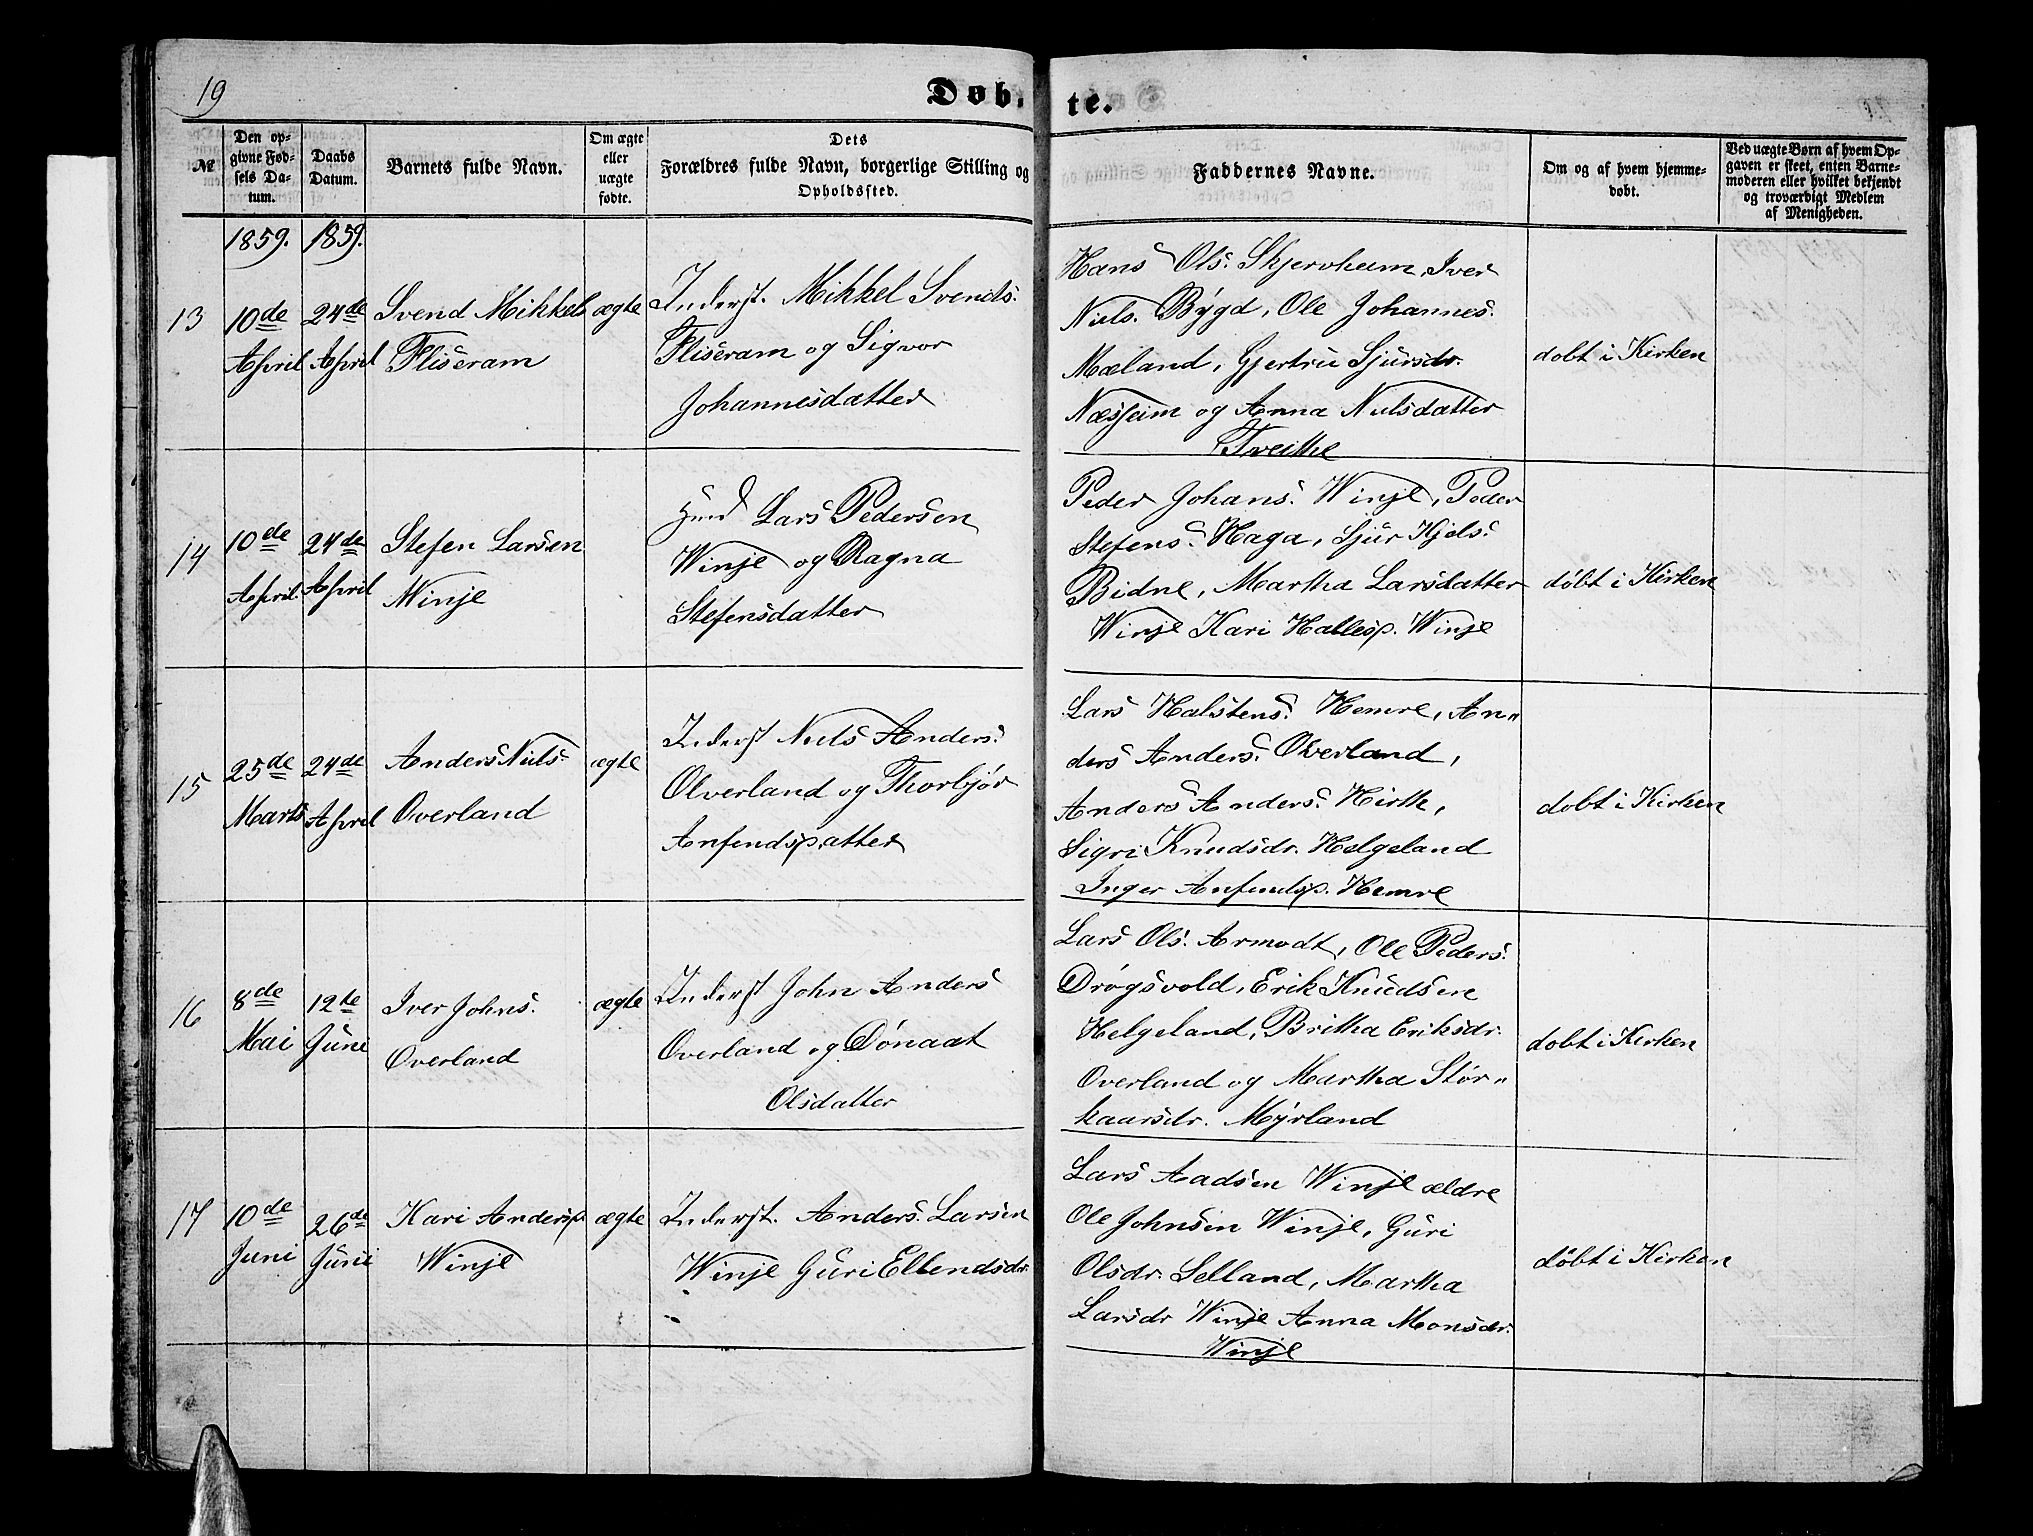 19
Døb.
te.
№
Den op-
givne Fød-
sels Da-
tum.
Daabs
Datum.
Barnets fulde Navn.
Om ægte
eller
uægte
fødte.
Dets
Forældres fulde Navn, borgerlige Stilling og
Opholdssted.
Faddernes Navne.
Om og af hvem hjemme-
døbt.
Ved uægte Børn af hvem Op-
gaven er skeet, enten Barne-
moderen eller hvilket bekjendt
og troværdigt Medlem
af Menigheden.
1859. 1859.
13
10de
April
24de
April
Svend Mikkels
Fliseram
ægte
Inderst. Mikkel Svends.
Fliseram og Sigvor
Johannesdatter
Hans Ols. Skjervheim, Iver
Niels. Bÿgd, Ole Johannes.
Mæland, Gjertru Sjursdr.
Næsheim og Anna Nielsdatter
Tveithe
dobt i Kirken
14
10de
April.
24de
April
Stefen Larsen
Winje
Lars Pedersen
Winje og Ragna
Stefensdatter
Peder Johans. Winje, Peder
Stefens. Haga, Sjur Kjels.
Bidne, Martha Larsdatter
Winje Kari Hallesp. Winje
døbt i Kirken
15
25de
Marts
24de
April
Anders Niels
Overland
ægte
Inderst Niels Anders.
Olverland og Thorbjør
Anfendsp.atter
Lars Halstens. Hemre, An„
ders Anders. Overland,
Anders Anders. Hirth,
Sigri Knudsdr. Helgeland
Inger Anfendsp. Hemre
dobt i Kirken
16
8de
Mai
12te
Juni
Iver Johns.
Overland
ægte
Inderst John Anders
Overland og Dønaat
Olsdatter
Lars Ols. Armodt, Ole Peders.
Drøgsvold, Erik Knudsen
Helgeland, Britha Eriksdr.
Overland og Martha Stør„
kaarsdr. Mÿrland
dobt i Kirken
17
10de
Juni
26de
Juni
Kari Andersp
Winje
ægte
Inderst. Anders. Larsen
Winje Guri Ellendsdr.
Lars Aadsen Winje ældre
Ole Johnsen Winje, Guri
Olsdr. Selland, Martha
Larsdr Winje Anna Monsdr.
Winje
døbt i Kirken